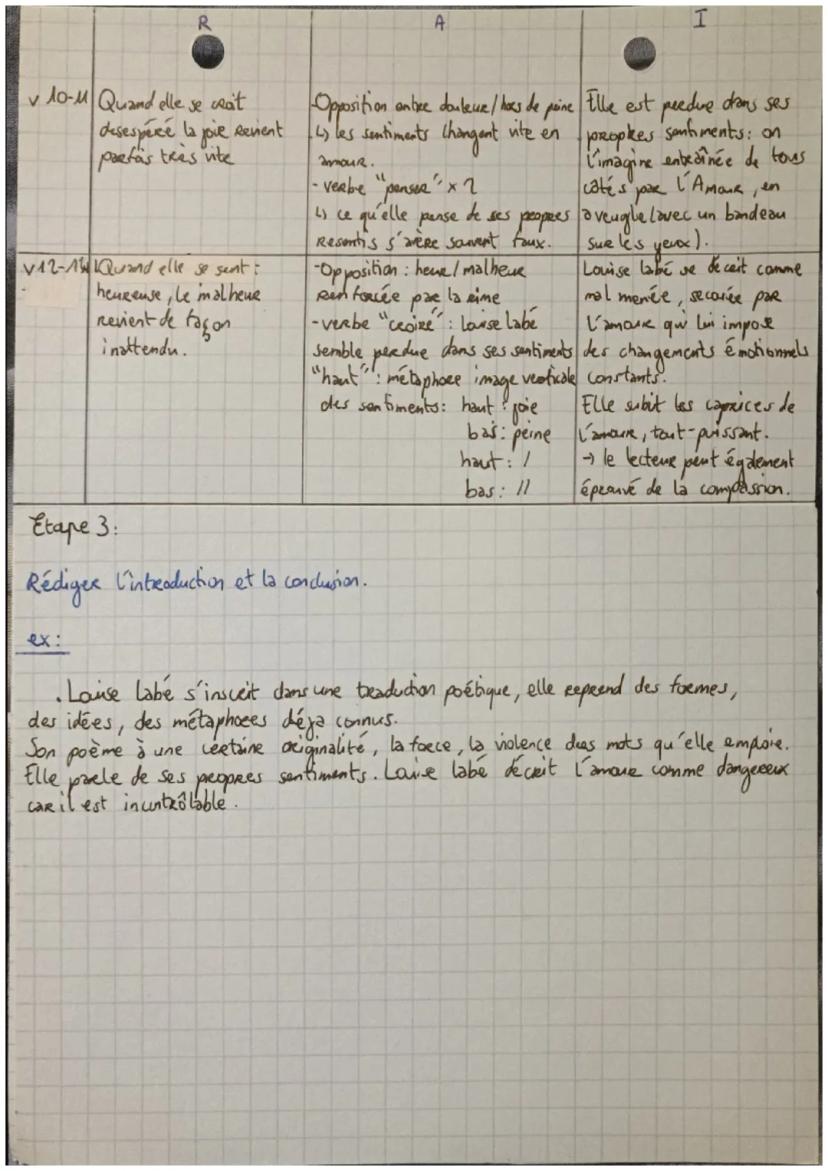 R A I
v 10-11
Quand elle se croit
desespéré la joie revient
parfois très vite
-Opposition entre douleur/hors de peine
↳ les sentiments changent vite en
amour.
- verbe "penser" x 2
↳ ce qu'elle pense de ses propres
ressentis s'avère souvent faux.
Elle est perdue dans ses
propres sentiments: on
l'imagine entraînée de tous
côtés par l'Amour, en
aveugle (avec un bandeau
sur les yeux).
v12-14
Quand elle se sent :
heureuse, le malheur
revient de façon
inattendu.
-Opposition : heur/malheur
renforcée par la rime
-verbe "croire" : Louise labé
semble perdue dans ses sentiments
"haut" : métaphore image verticale
des sentiments: haut : joie
bas: peine
haut: /
bas: //
Louise labé se décrit comme
mal menée, secouée par
l'amour qui lui impose
des changements émotionnels
constants.
Elle subit les caprices de
l'amour, tout-puissant.
→ le lecteur peut également
éprouvé de la compassion.
Etape 3:
Rédiger l'introduction et la conclusion.
ex:
. Louise labé s'inscrit dans une traduction poétique, elle reprend des formes,
des idées, des métaphores déja connus.
Son poème à une certaine originalité, la force, la violence des mots qu'elle emploie.
Elle parle de ses propres sentiments. Louise labé décrit l'amour comme dangereux
car il est incontrôlable.